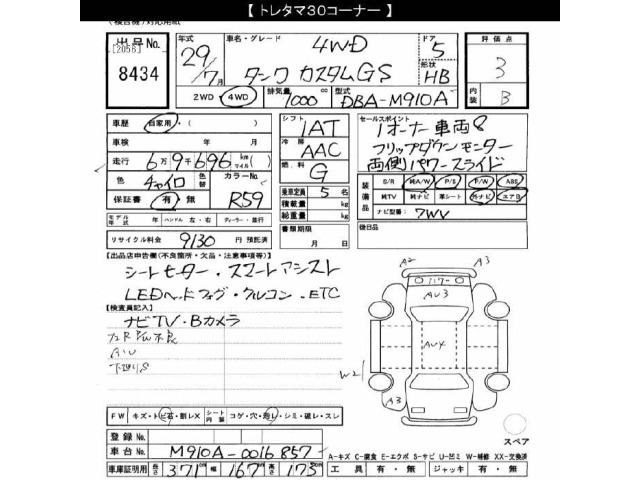 【 トレタマ30コーナー 】
(検査機)対応用紙
出品No.
[2056]
8434
年式
29/7月
車名・グレード
4WD
タンク カスタムGS
ドア
5
形状
HB
評価点
3
内装
B
2WD 4WD
排気量
1000cc
型式
DBA-M910A
車歴 自家用・( )
車検 年 月
走行 6万9千696 km(マイル)
色 チャイロ
色替
カラーNo. R59
保証書 有・無
モデル年式 年 ハンドル 左・右 ディーラー・並行
リサイクル料金 9130 円 預託済
シフト
1AT
エアコン
AAC
燃料
G
乗車定員 5 名
積載量 kg
総重量 kg
書類期限
月 日
セールスポイント
1オーナー車両8
フリップダウンモニター
両側パワースライド
装備品
S/R 純A/W P/S P/W ABS
純TV 純ナビ 革シート 外ナビ エアB
ナビ型番: 7WV
後日品
【出品店申告欄(不良箇所・欠品・注意事項等)】
シートヒーター・スマートアシスト
LEDヘッドフォグ・クルコン・ETC
【検査員記入】
ナビTV・Bカメラ
左R P/W不良
下廻りS
A2
A3
AU3
AU4
W2
A3
A3
FW キズ・トビ石・割レX
シート内装 コゲ・穴・スレ・シミ・破レ・スレ
登録No.
車台No. M910A-0016857
車庫証明用 長さ 371cm 幅 167cm 高さ 173cm
スペア
A-キズ C-腐食 E-エクボ S-サビ U-凹ミ W-補修 XX-交換済
工具 有・無 ジャッキ 有・無